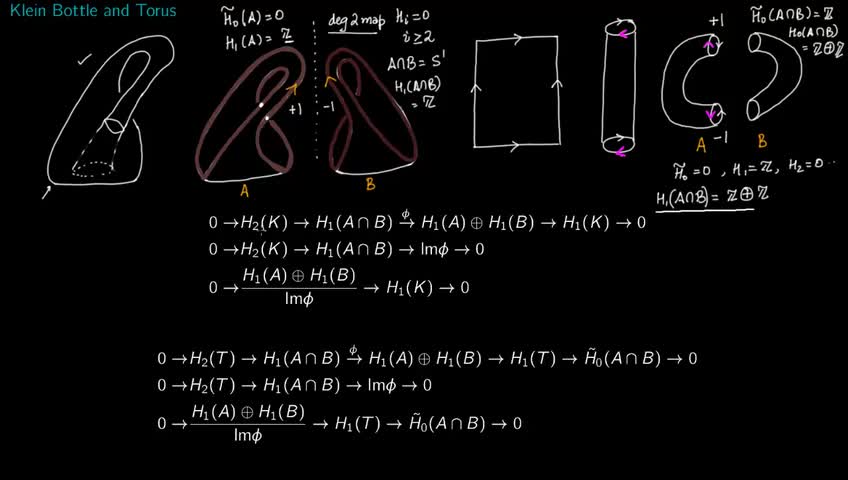 Klein Bottle and Torus
H̃₀(A)=0
H₁(A) = ℤ
deg 2 map
Hᵢ=0
i≥2
A∩B = S¹
H₁(A∩B)
= ℤ
+1
-1
A
B
+1
-1
A
B
H̃₀(A∩B)=ℤ
H₀(A∩B)
= ℤ⊕ℤ
H̃₀=0 , H₁=ℤ, H₂=0...
H₁(A∩B) = ℤ⊕ℤ
0 → H₂(K) → H₁(A ∩ B) →^ϕ H₁(A) ⊕ H₁(B) → H₁(K) → 0
0 → H₂(K) → H₁(A ∩ B) → Imϕ → 0
0 → (H₁(A) ⊕ H₁(B))/Imϕ → H₁(K) → 0
0 → H₂(T) → H₁(A ∩ B) →^ϕ H₁(A) ⊕ H₁(B) → H₁(T) → H̃₀(A ∩ B) → 0
0 → H₂(T) → H₁(A ∩ B) → Imϕ → 0
0 → (H₁(A) ⊕ H₁(B))/Imϕ → H₁(T) → H̃₀(A ∩ B) → 0